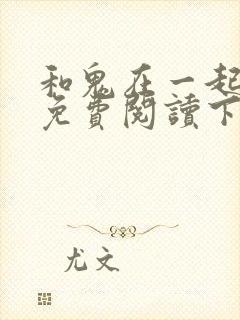 和鬼在一起
免費閱讀下
尤文